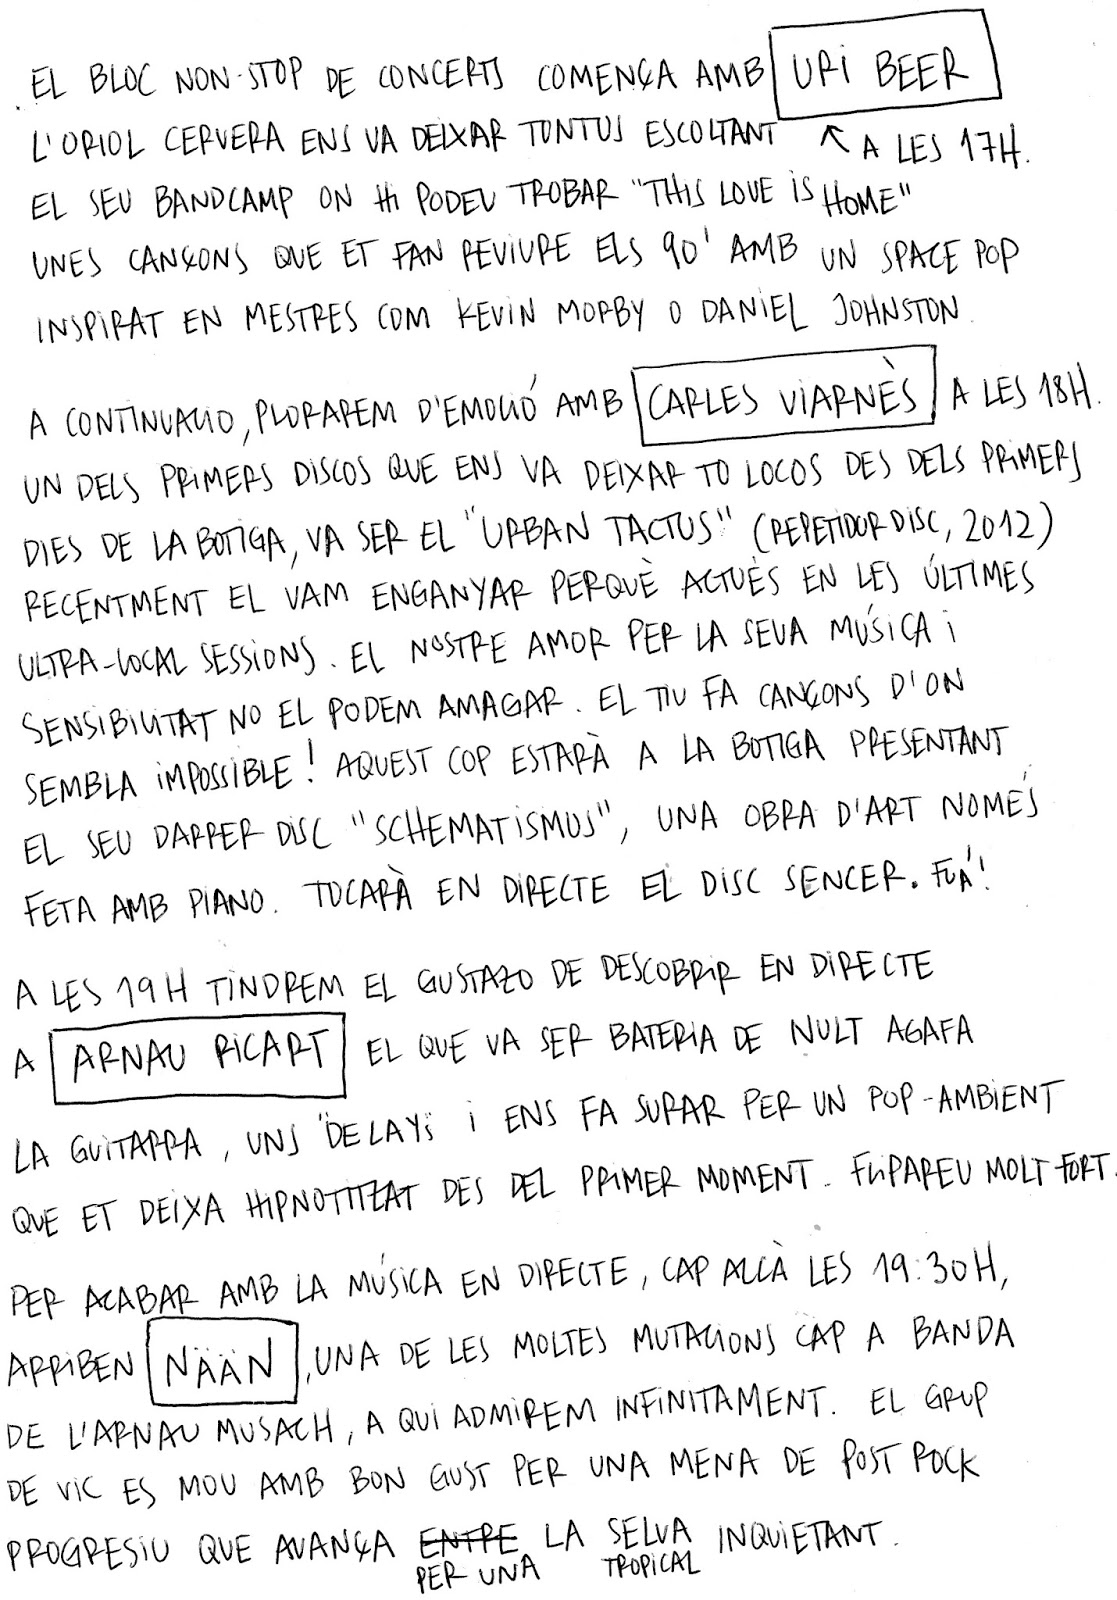 EL BLOC NON-STOP DE CONCERTS COMENÇA AMB URI BEER
L'ORIOL CERVERA ENS VA DEIXAR TONTUS ESCOLTANT ↖ A LES 17H.
EL SEU BANDCAMP ON HI PODEU TROBAR "THIS LOVE IS HOME"
UNES CANÇONS QUE ET FAN REVIURE ELS 90' AMB UN SPACE POP
INSPIRAT EN MESTRES COM KEVIN MORBY O DANIEL JOHNSTON.
A CONTINUACIO, PLORAREM D'EMOCIÓ AMB CARLES VIARNÈS A LES 18H.
UN DELS PRIMERS DISCOS QUE ENS VA DEIXAR TO LOCOS DES DELS PRIMERS
DIES DE LA BOTIGA, VA SER EL "URBAN TACTUS" (REPETIDOR DISC, 2012)
RECENTMENT EL VAM ENGANYAR PERQUÈ ACTUÈS EN LES ÚLTIMES
ULTRA-LOCAL SESSIONS. EL NOSTRE AMOR PER LA SEVA MÚSICA i
SENSIBILITAT NO EL PODEM AMAGAR. EL TIU FA CANÇONS D'ON
SEMBLA IMPOSSIBLE! AQUEST COP ESTARÀ A LA BOTIGA PRESENTANT
EL SEU DARRER DISC "SCHEMATISMUS", UNA OBRA D'ART NOMÉS
FETA AMB PIANO. TOCARÀ EN DIRECTE EL DISC SENCER. FUÁ!
A LES 19H TINDREM EL GUSTAZO DE DESCOBRIR EN DIRECTE
A ARNAU RICART EL QUE VA SER BATERIA DE NULT AGAFA
LA GUITARRA, UNS DELAYS i ENS FA SURAR PER UN POP-AMBIENT
QUE ET DEIXA HIPNOTITZAT DES DEL PRIMER MOMENT. FLIPAREU MOLT FORT.
PER ACABAR AMB LA MÚSICA EN DIRECTE, CAP ALLÀ LES 19:30H,
ARRIBEN NÄÄN, UNA DE LES MOLTES MUTACIONS CAP A BANDA
DE L'ARNAU MUSACH, A QUI ADMIREM INFINITAMENT. EL GRUP
DE VIC ES MOU AMB BON GUST PER UNA MENA DE POST ROCK
PROGRESIU QUE AVANÇA ENTRE LA SELVA INQUIETANT.
PER UNA TROPICAL